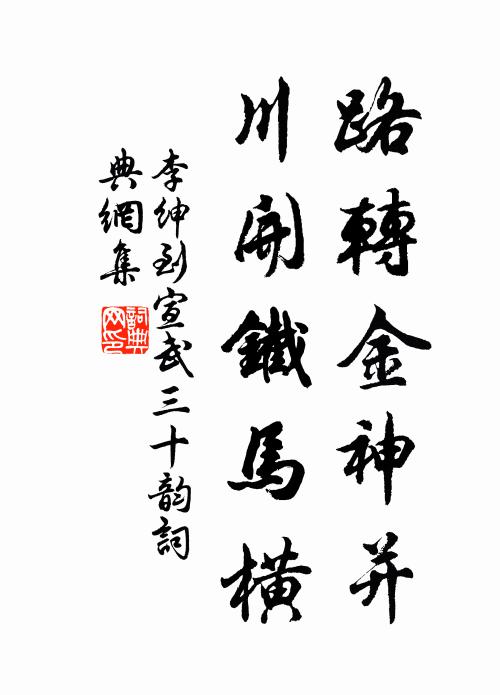 路轉金神并
川開鐵馬橫
李紳到宣武三十韵詞
典網集
詞典网印